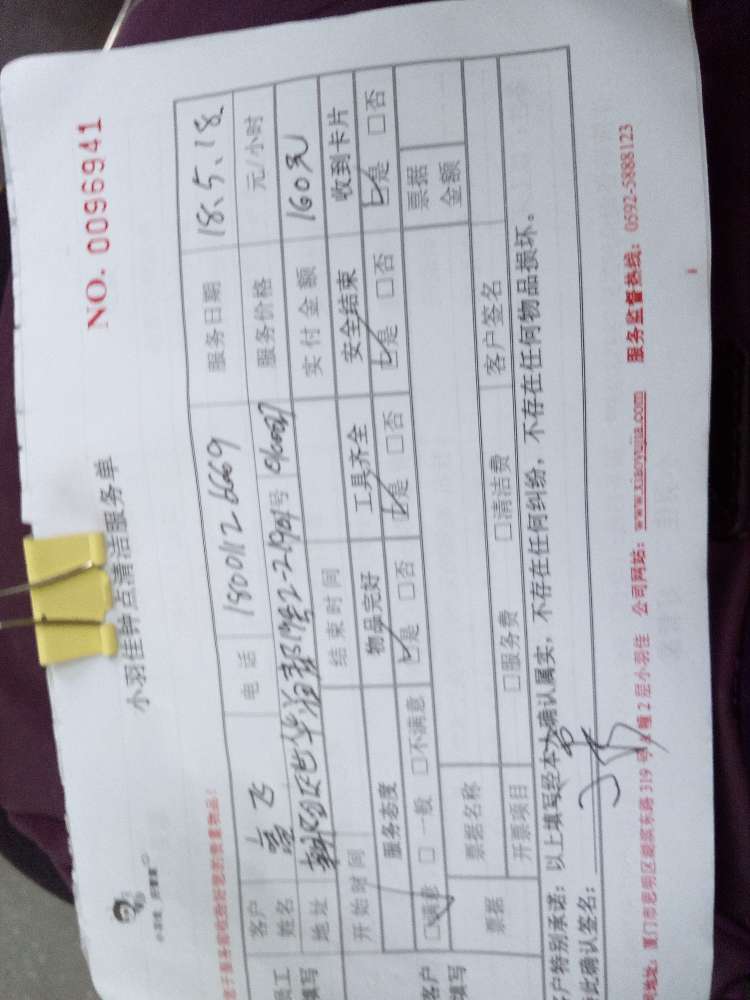 NO. 0096941
小羽佳钟点清洁服务单
客户姓名 飞 电话 18001126669 服务日期 18.5.18
地址 服务价格 元/小时
开始时间 结束时间 实付金额 160元
服务态度 物品完好 工具齐全 安全结束 收到卡片
☑满意 □一般 □不满意 ☑是 □否 ☑是 □否 ☑是 □否 ☑是 □否
票据 票据名称 票据金额
开票项目 □服务费 □清洁费 客户签名
客户特别承诺：以上填写经本人确认属实，不存在任何纠纷，不存在任何物品损坏。
此确认签名：
地址：厦门市思明区湖滨东路319号 2层小羽佳 公司网站：www.xiaoyujia.com 服务监督热线：0592-5888123